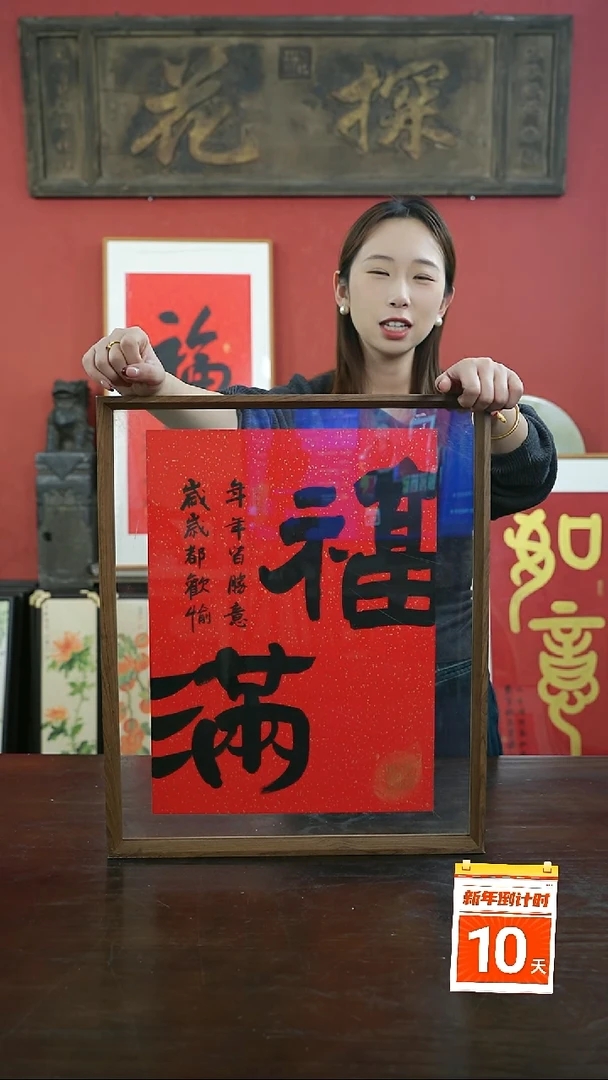 探花
福
福
满
年年皆勝意
歲歲都歡愉
如意
新年倒计时
10天